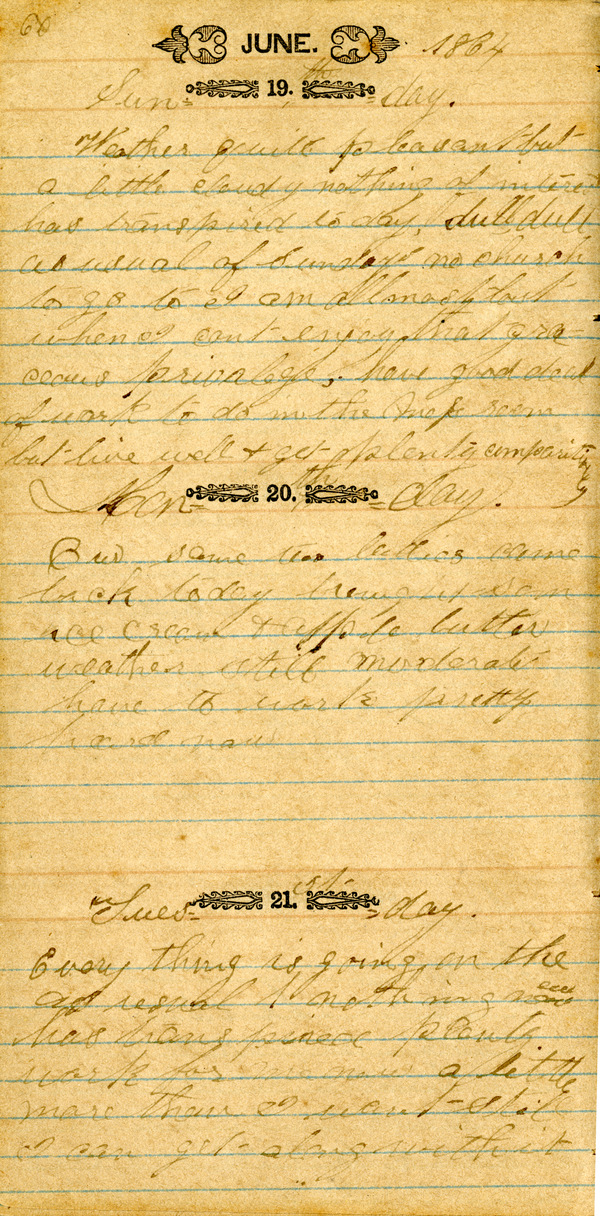 68
JUNE. 1864
Sun= 19.th =day.
Weather quite pleasant but
a little cloudy nothing of interest
has transpired to day, dull dull
as usual of Sundays no church
to go to I am allmost lost
when I cant enjoy that gra-
ceous privalege, have good deal
of work to do in the Mess room
but live well & get plenty comparitively
Mon= 20.th =day.
some two ladies came
back today brought some
ice cream & apple butter
weather still moderate
have to work pretty
hard now
Tues= 21.st =day.
Every thing is going on the
as usual nothing new
has transpired plenty
work for me now a little
more than I want still
I can get along with it